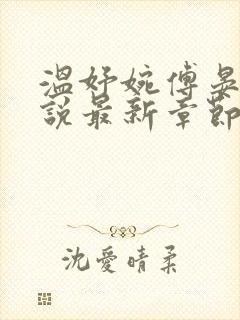 温妤婉傅晏
說最新章節
沈愛晴柔